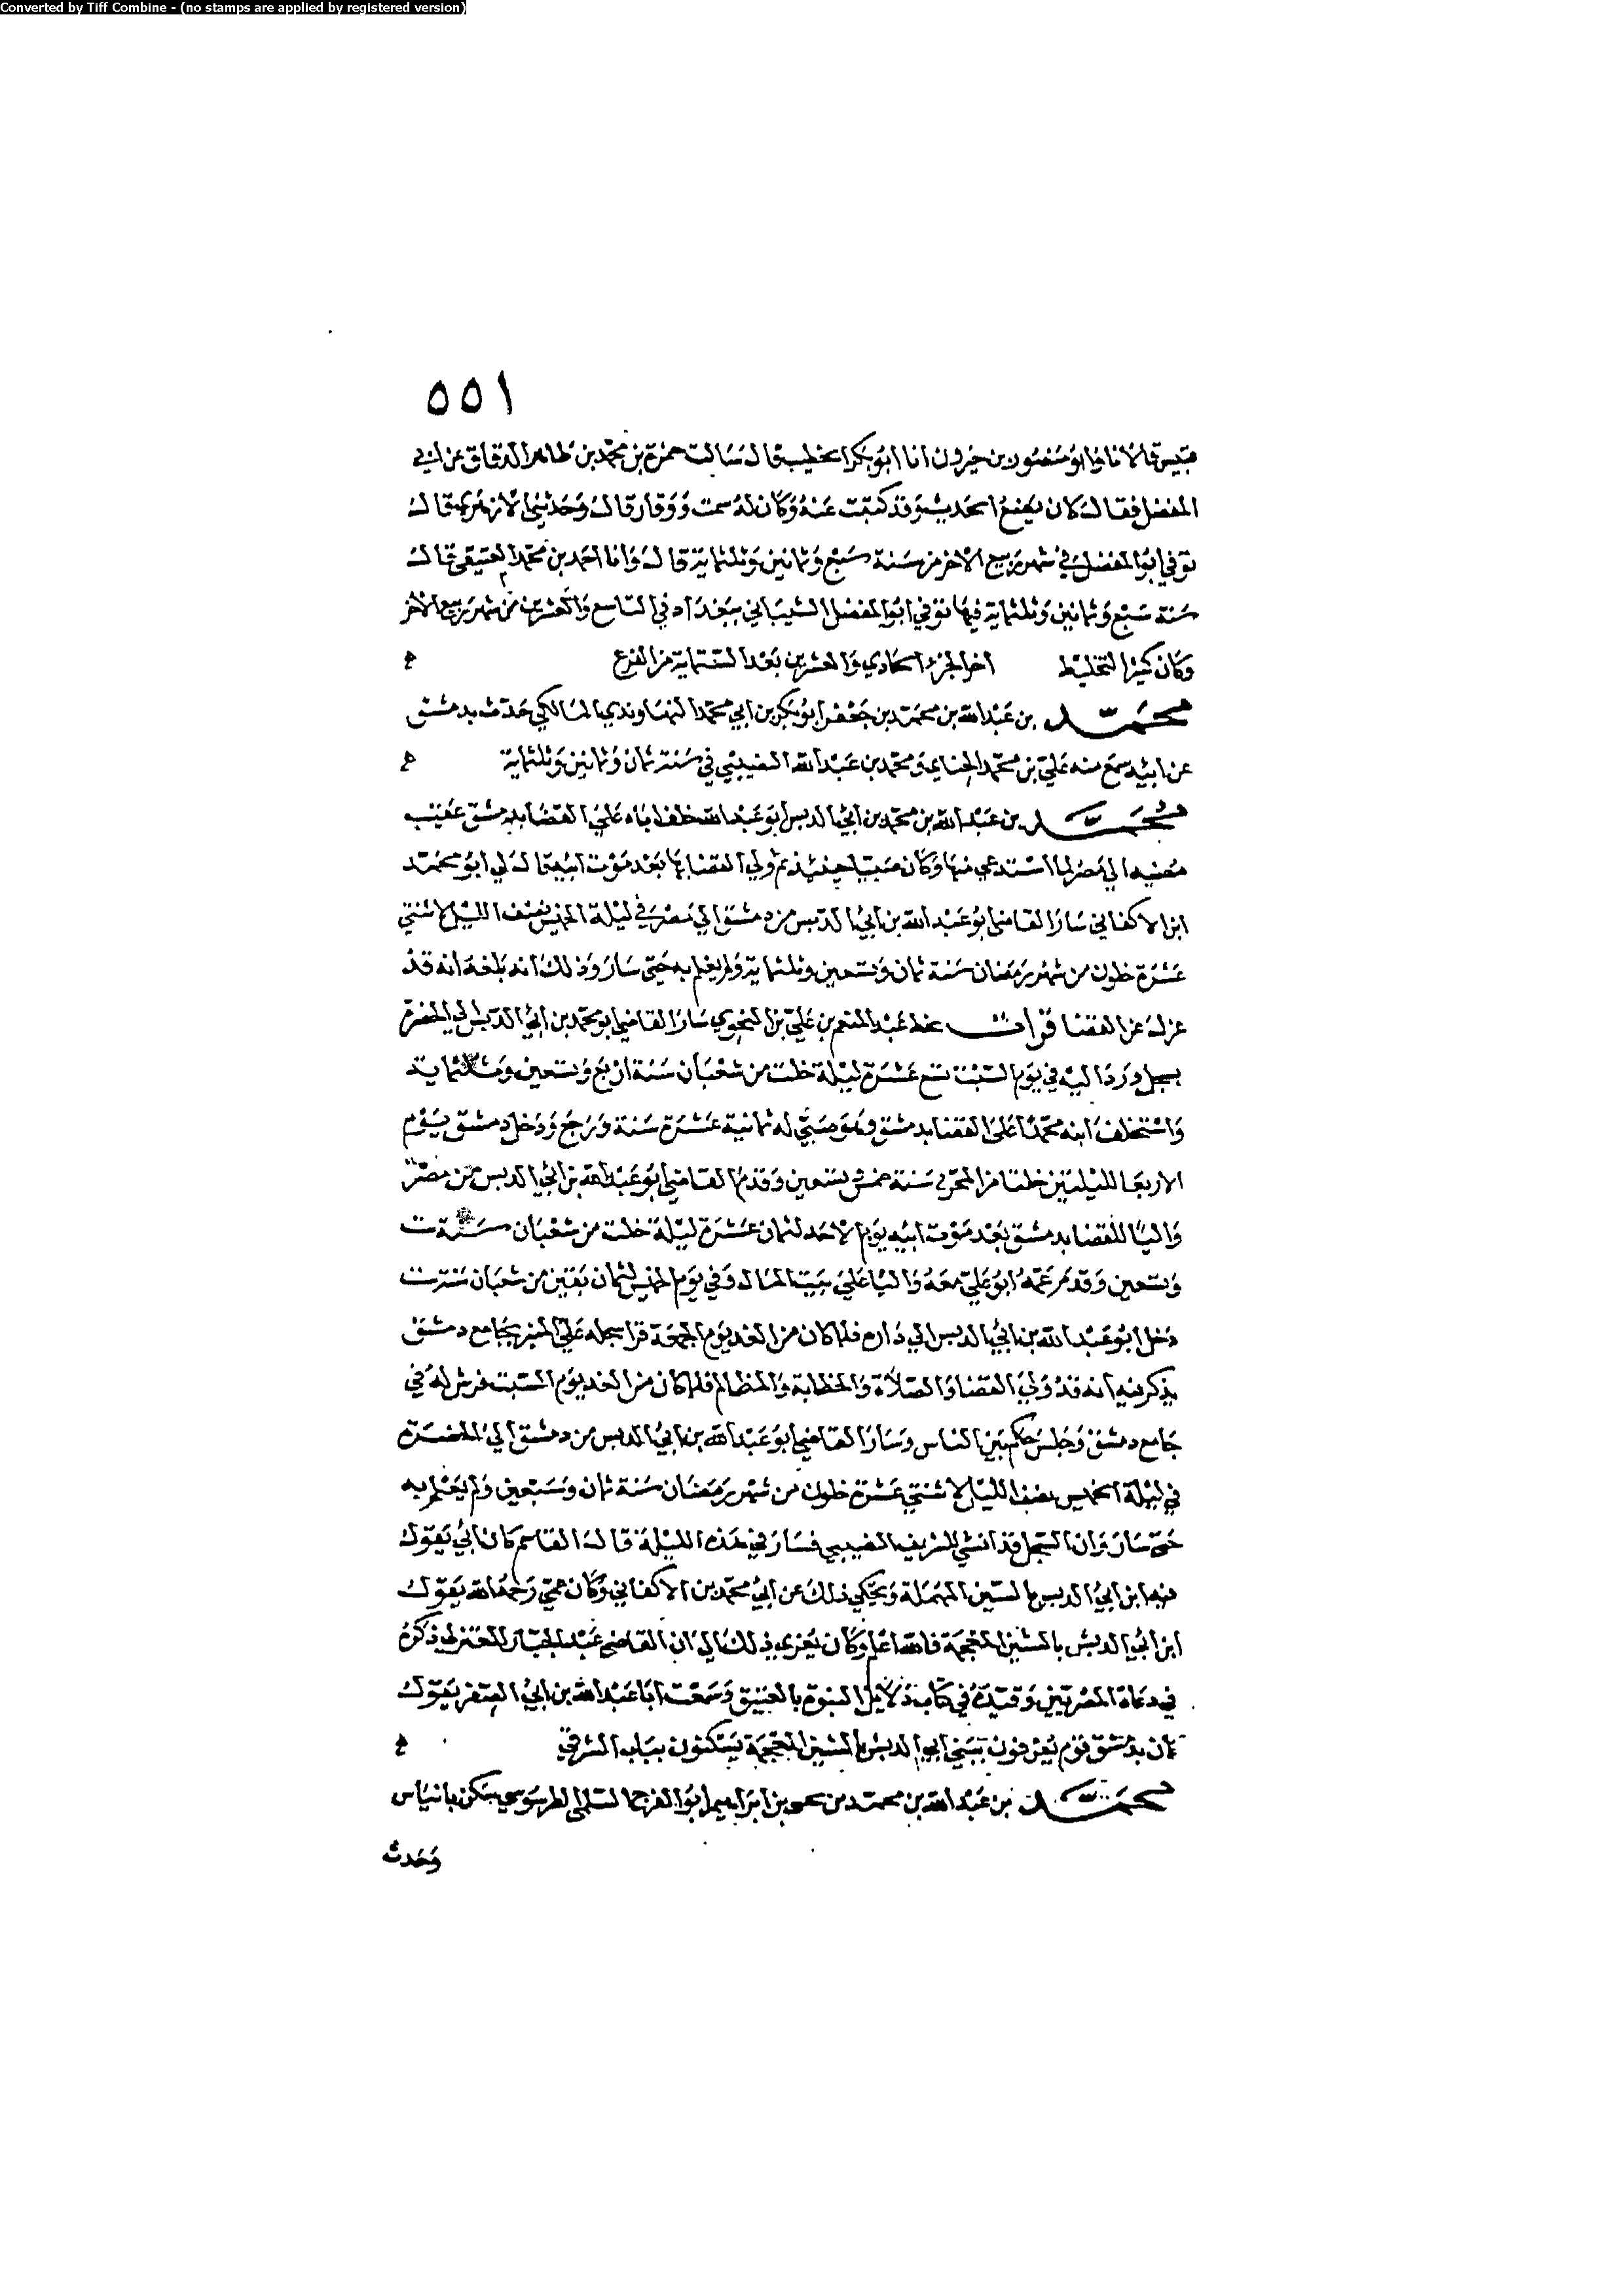 Converted by Tiff Combine - (no stamps are applied by registered version)
٥٥١
قبيس قالا نا وابو منصور بن خيرون انا ابو بكر الخطيب قال سالت حمزة بن محمد بن طاهر الدقاق عن ابي
المفضل فقال كان يضع الحديث وقد كتبت عنه وكان له سمت ووقار قال وحدثني الازهري قال
توفي ابو المفضل في شهر ربيع الاخر من سنة سبع وثمانين وثلثماية قال وانا احمد بن محمد العتيقي قال
سنة سبع وثمانين وثلثماية فيها توفي ابو المفضل الشيباني ببغداد في التاسع والعشرين من شهر ربيع الاخر
وكان كثير التخليط اخر الجزء الحادي والعشرين بعد الستماية من الفرع
محمد بن عبد الله بن محمد بن جعفر ابو بكر بن ابي محمد النهاوندي المالكي حدث بدمشق
عن ابيه سمع منه علي بن محمد الحنائي ومحمد بن عبد الله النصيبي في سنة ثمان وثمانين وثلثماية
محمد بن عبد الله بن محمد بن ابي الدبس ابو عبد الله خلف اباه علي القضا بدمشق عقيب
مضيه الي مصر لما استدعي منها وكان صبيا حينئذ ثم ولي القضا بها بعد موت ابيه قال لي ابو محمد
ابن الاكفاني سار القاضي ابو عبد الله بن ابي الدبس من دمشق الي مصر في ليلة الخميس نصف الليل لاثنتي
عشرة خلون من شهر رمضان سنة ثمان وتسعين وثلثماية ولم يعلم به حتى سار وذلك انه بلغه انه قد
عزل عن القضا قرات بخط عبد المنعم بن علي بن النحوي سار القاضي ابو محمد بن ابي الدبس الي الحضرة
بسجل ورد اليه في يوم السبت تسع عشرة ليلة خلت من شعبان سنة اربع وتسعين وثلثماية
واستخلف ابنه محمدا على القضا بدمشق وهو صبي له ثمانية عشرة سنة ورجع ودخل دمشق يوم
الاربعا لليلتين خلتا من المحرم سنة خمس وتسعين وقدم القاضي ابو عبد الله بن ابي الدبس من مصر
واليا للقضا بدمشق بعد موت ابيه يوم الاحد لثمان عشرة ليلة خلت من شعبان سنة ست
وتسعين وقدم عمه ابو علي معه واليا علي بيت المال وفي يوم الخميس لثمان بقين من شعبان سنة ست
دخل ابو عبد الله بن ابي الدبس الي داره فلما كان من الغد يوم الجمعة قرا سجله علي المنبر بجامع دمشق
يذكر فيه انه قد ولي القضا والصلاة والخطابة والمظالم فلما كان من الغد يوم السبت فرش له في
جامع دمشق وجلس حكم بين الناس وسار القاضي ابو عبد الله بن ابي الدبس من دمشق الي الحضرة
في ليلة الخميس نصف الليل لاثنتي عشرة خلون من شهر رمضان سنة ثمان وتسعين ولم يعلم به
حتى سار وان السجل قد انشي للشريف النصيبي فسار في هذه الليلة قال القاسم كان ابي يقول
فيها ابن ابي الدبس بالسين المهملة ويحكي ذلك عن ابي محمد بن الاكفاني وكان عمي رحمه الله يقول
ابن ابي الدبش بالشين المعجمة فالله اعلم وكان يعزي ذلك الي ان القاضي عبد الجبار المعتزلي ذكره
في دعاة المصريين وقيده في كتابه دلايل النبوة بالعتيق وسمعت ابا عبد الله بن ابي الصقر يقول
كان بدمشق قوم يعرفون ببني ابي الدبش بالشين المعجمة يسكنون بباب الشرقي
محمد بن عبد الله بن محمد بن ابراهيم ابو الفرج السلمي الطرسوسي سكن بانياس
وحدث